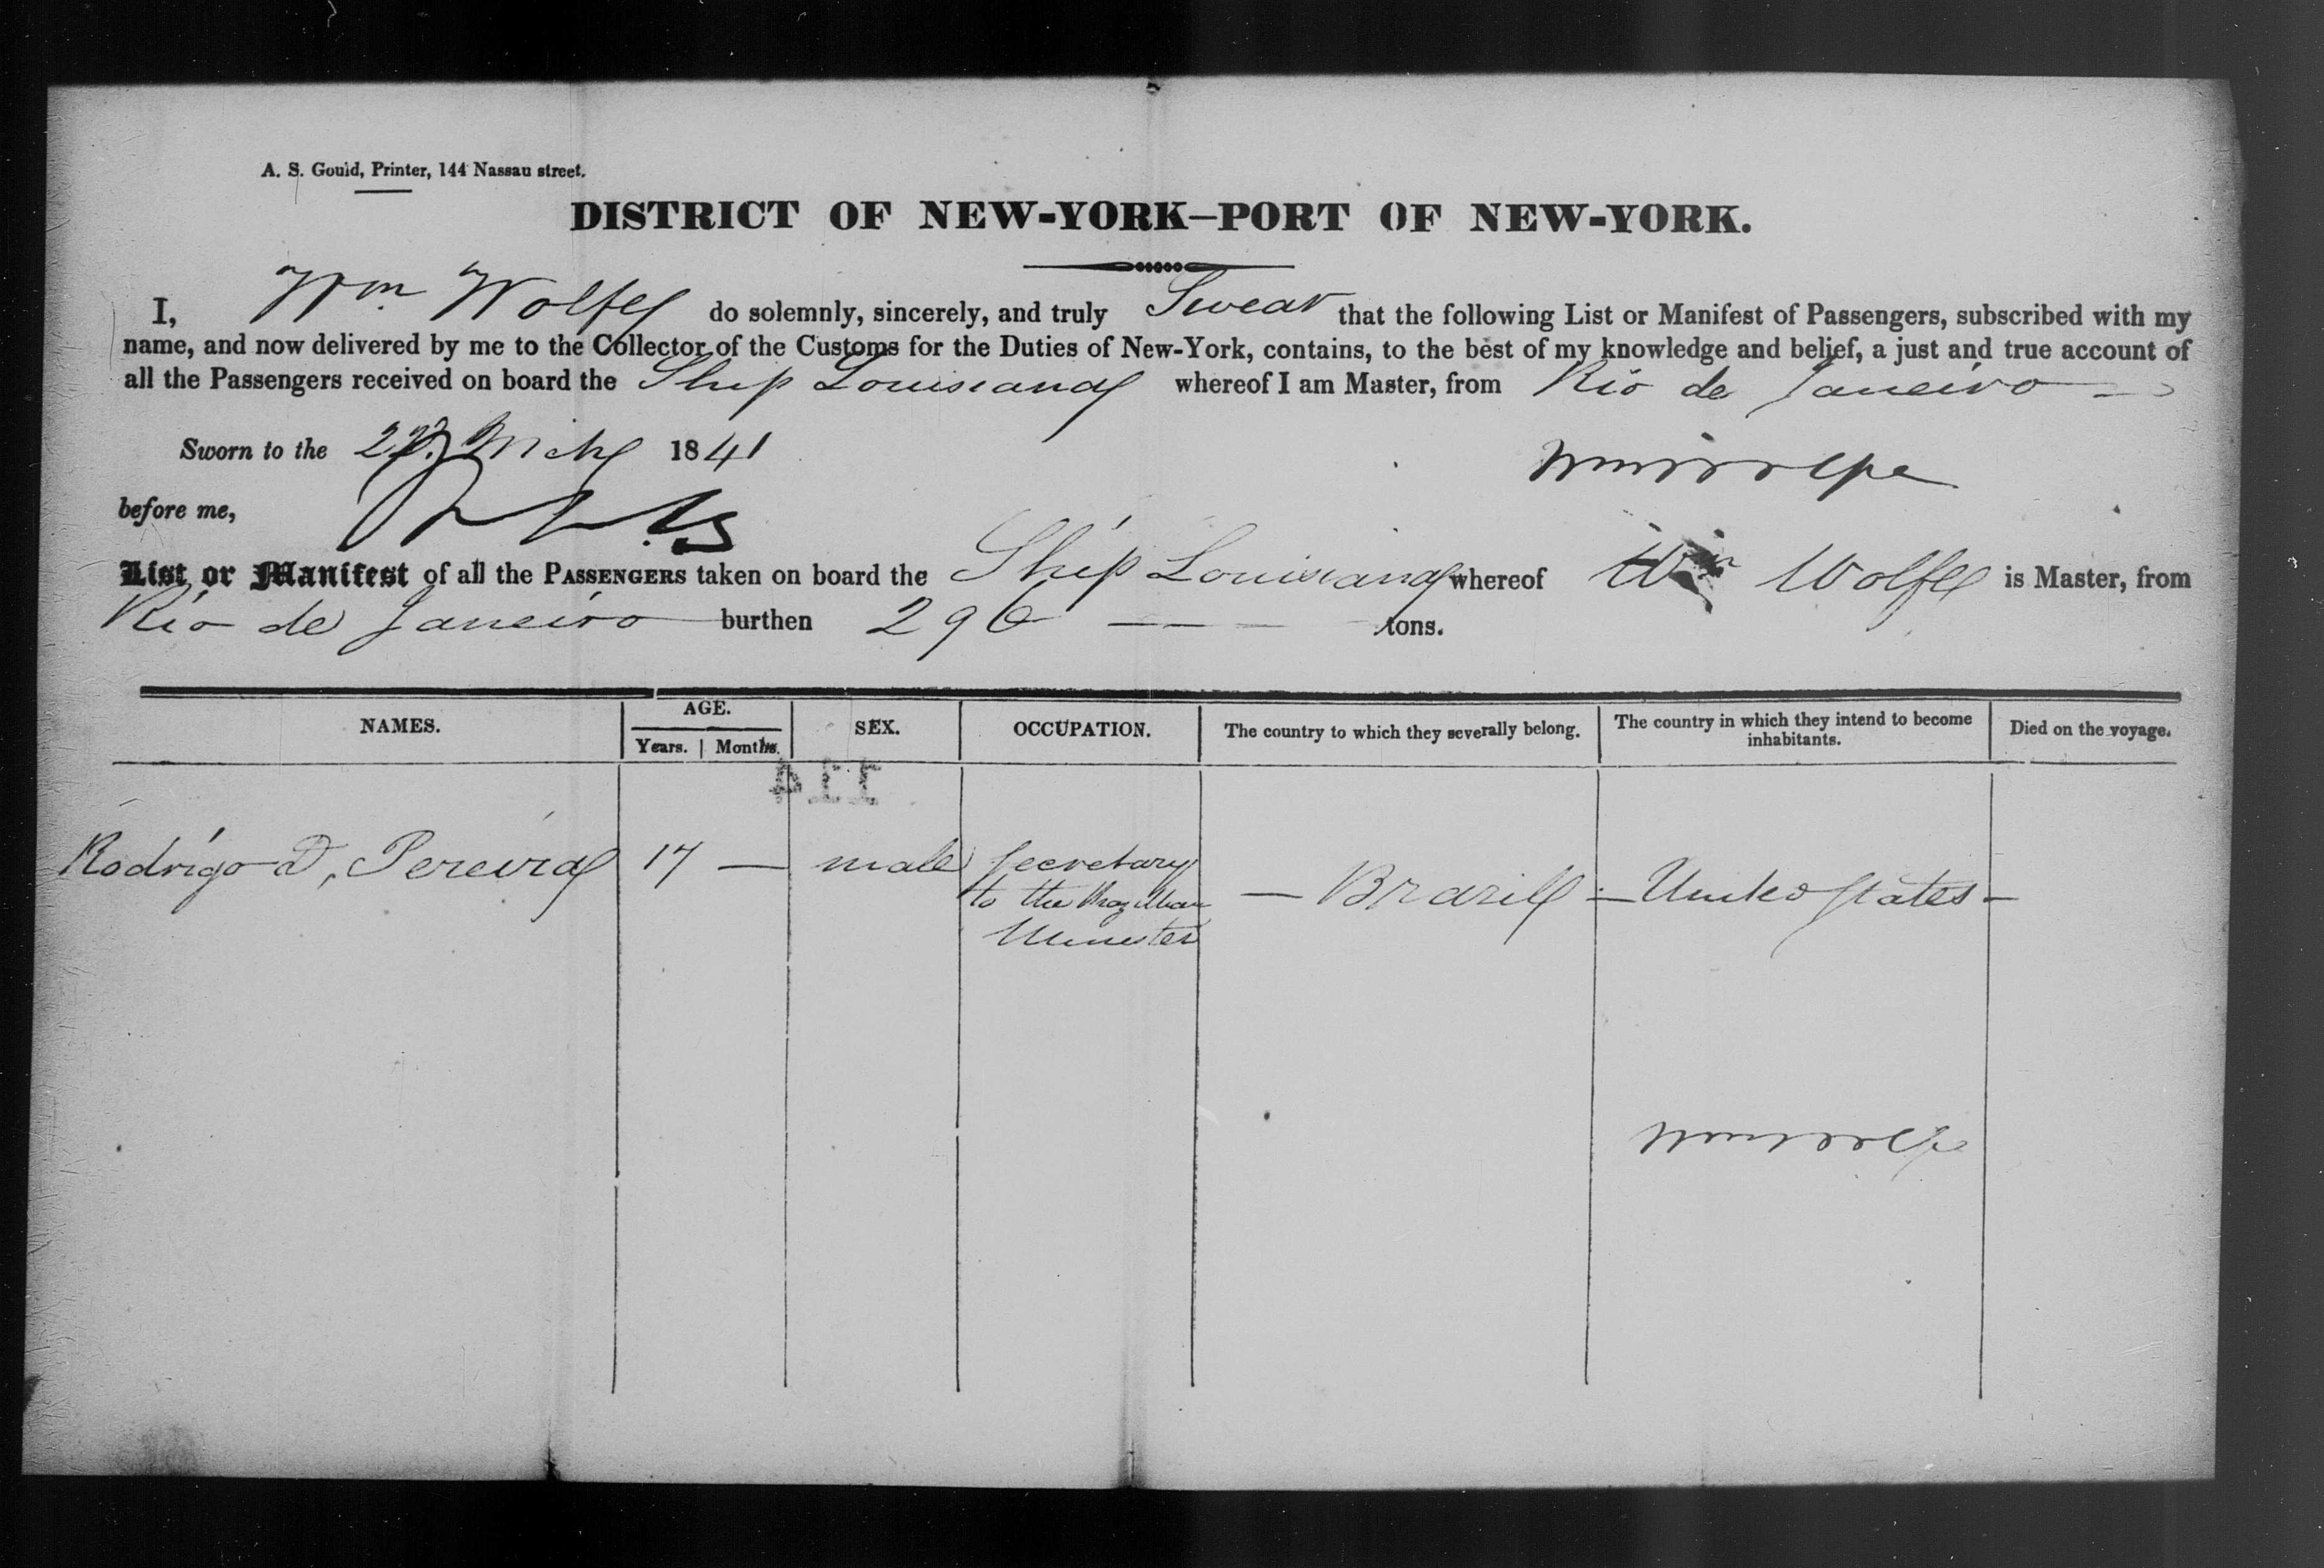 A. S. Gould, Printer, 144 Nassau street.
DISTRICT OF NEW-YORK–PORT OF NEW-YORK.
I, Wm Wolfe do solemnly, sincerely, and truly Swear that the following List or Manifest of Passengers, subscribed with my
name, and now delivered by me to the Collector of the Customs for the Duties of New-York, contains, to the best of my knowledge and belief, a just and true account of
all the Passengers received on board the Ship Louisiana whereof I am Master, from Rio de Janeiro
Sworn to the 1841
Wm Wolfe
before me,
List or Manifest of all the PASSENGERS taken on board the Ship Louisiana whereof Wm Wolfe is Master, from
Rio de Janeiro burthen 296 tons.
NAMES. AGE. SEX. OCCUPATION. The country to which they severally belong. The country in which they intend to become inhabitants. Died on the voyage.
Years. Months.
114
Rodrigo D, Pereira 17 — male Secretary — Brazill — United States —
to the Brazillian
Minister
Wm Wolfe